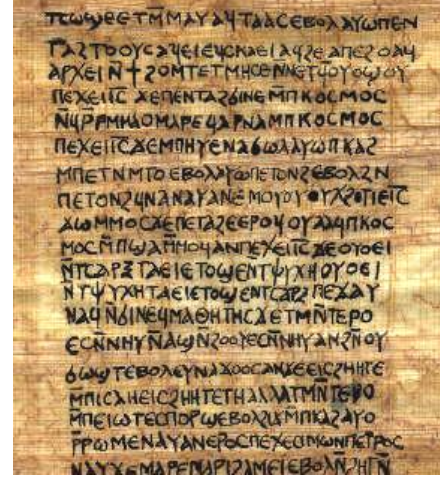 ⲧⲥⲱϣⲉⲉⲧⲙ̄ⲙⲁⲩⲁϥⲧⲁⲁⲥⲉⲃⲟⲗⲁⲩⲱⲡⲉⲛ
ⲧⲁϩⲧⲟⲟⲩⲥⲁϥⲉⲓⲉϥⲥⲕⲁⲉⲓⲁϥϩⲉⲁⲡⲉϩⲟⲁϥ
ⲁⲣⲭⲉⲓⲛ̄ϯϩⲟⲙⲧⲉⲧⲙⲏⲥⲉⲛ̄ⲛⲉⲧϥⲟⲩⲟϣⲟⲩ
ⲡⲉϫⲉⲓ̅ⲥ̅ϫⲉⲡⲉⲛⲧⲁϩϭⲓⲛⲉⲙ̄ⲡⲕⲟⲥⲙⲟⲥ
ⲛ̄ϥⲣ̄ⲣⲙ̄ⲙⲁⲟⲙⲁⲣⲉϥⲁⲣⲛⲁⲙ̄ⲡⲕⲟⲥⲙⲟⲥ
ⲡⲉϫⲉⲓ̅ⲥ̅ϫⲉⲙ̄ⲡⲏⲩⲉⲛⲁϭⲱⲗⲁⲩⲱⲡⲕⲁϩ
ⲙ̄ⲡⲉⲧⲛ̄ⲙ̄ⲧⲟⲉⲃⲟⲗⲁⲩⲱⲡⲉⲧⲟⲛϩⲉⲃⲟⲗϩⲛ̄
ⲡⲉⲧⲟⲛϩϥⲛⲁⲛⲁⲩⲁⲛⲉⲙⲟⲩⲟⲩⲭϩⲟⲧⲓⲉⲓ̅ⲥ̅
ϫⲱⲙ̄ⲙⲟⲥϫⲉⲡⲉⲧⲁϩⲉⲉⲣⲟϥⲟⲩⲁⲁϥⲡⲕⲟⲥ
ⲙⲟⲥⲙ̄ⲡϣⲁⲙ̄ⲙⲟϥⲁⲛⲡⲉϫⲉⲓ̅ⲥ̅ϫⲉⲟⲩⲟⲉⲓ
ⲛ̄ⲧⲥⲁⲣⲝⲧⲁⲉⲓⲉⲧⲟϣⲉⲛ̄ⲧⲯⲩⲭⲏⲟⲩⲟⲉⲓ
ⲛ̄ⲧⲯⲩⲭⲏⲧⲁⲉⲓⲉⲧⲟϣⲉⲛ̄ⲧⲥⲁⲣⲝⲡⲉϫⲁⲩ
ⲛⲁϥⲛ̄ϭⲓⲛⲉϥⲙⲁⲑⲏⲧⲏⲥϫⲉⲧⲙⲛ̄ⲧⲉⲣⲟ
ⲉⲥⲛ̄ⲛⲏⲩⲛ̄ⲁϣⲛ̄ϩⲟⲟⲩⲉⲥⲛ̄ⲛⲏⲩⲁⲛϩⲛ̄ⲟⲩ
ϭⲱϣⲧⲉⲃⲟⲗⲉⲩⲛⲁϫⲟⲟⲥⲁⲛϫⲉⲉⲓⲥϩⲏⲏⲧⲉ
ⲙ̄ⲡⲓⲥⲁⲏⲉⲓⲥϩⲏⲏⲧⲉⲧⲏⲁⲗⲗⲁⲧⲙⲛ̄ⲧⲉⲣⲟ
ⲙ̄ⲡⲉⲓⲱⲧⲉⲥⲡⲟⲣϣⲉⲃⲟⲗϩⲓϫⲙ̄ⲡⲕⲁϩⲁⲩⲱ
ⲣ̄ⲣⲱⲙⲉⲛⲁⲩⲁⲛⲉⲣⲟⲥⲡⲉϫⲉⲥⲓⲙⲱⲛⲡⲉⲧⲣⲟⲥ
ⲛⲁⲩϫⲉⲙⲁⲣⲉⲙⲁⲣⲓϩⲁⲙⲉⲓⲉⲃⲟⲗⲛ̄ϩⲏⲧⲛ̄